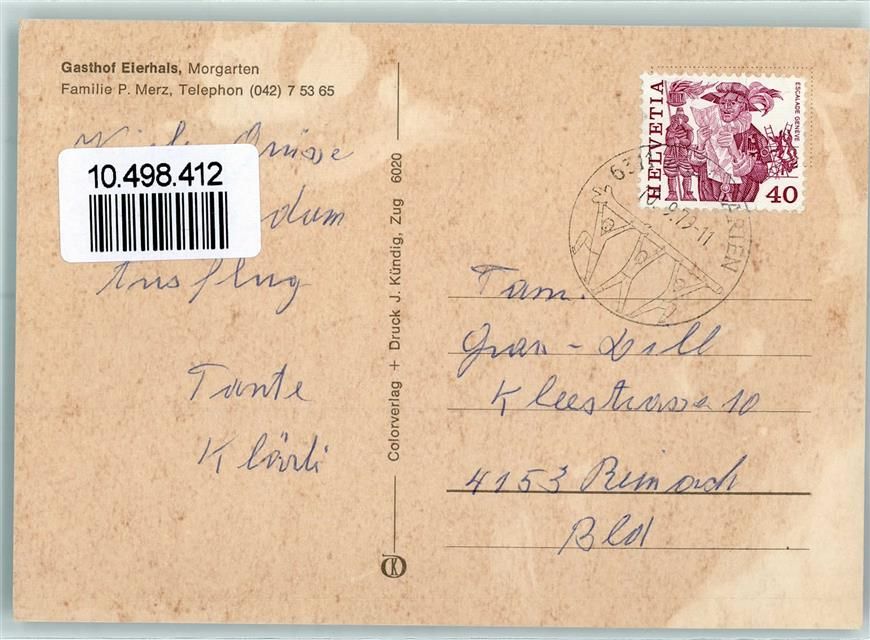 Gasthof Eierhals, Morgarten
Familie P. Merz, Telephon (042) 7 53 65
Grüsse
10.498.412
Ausflug
Tante
Klärli
Colorverlag + Druck J. Kündig, Zug 6020
HELVETIA
ESCALADE GENÈVE
40
9.79-11
Fam.
Gran - Dill
Kleestrasse 10
4153 Reinach
Bld